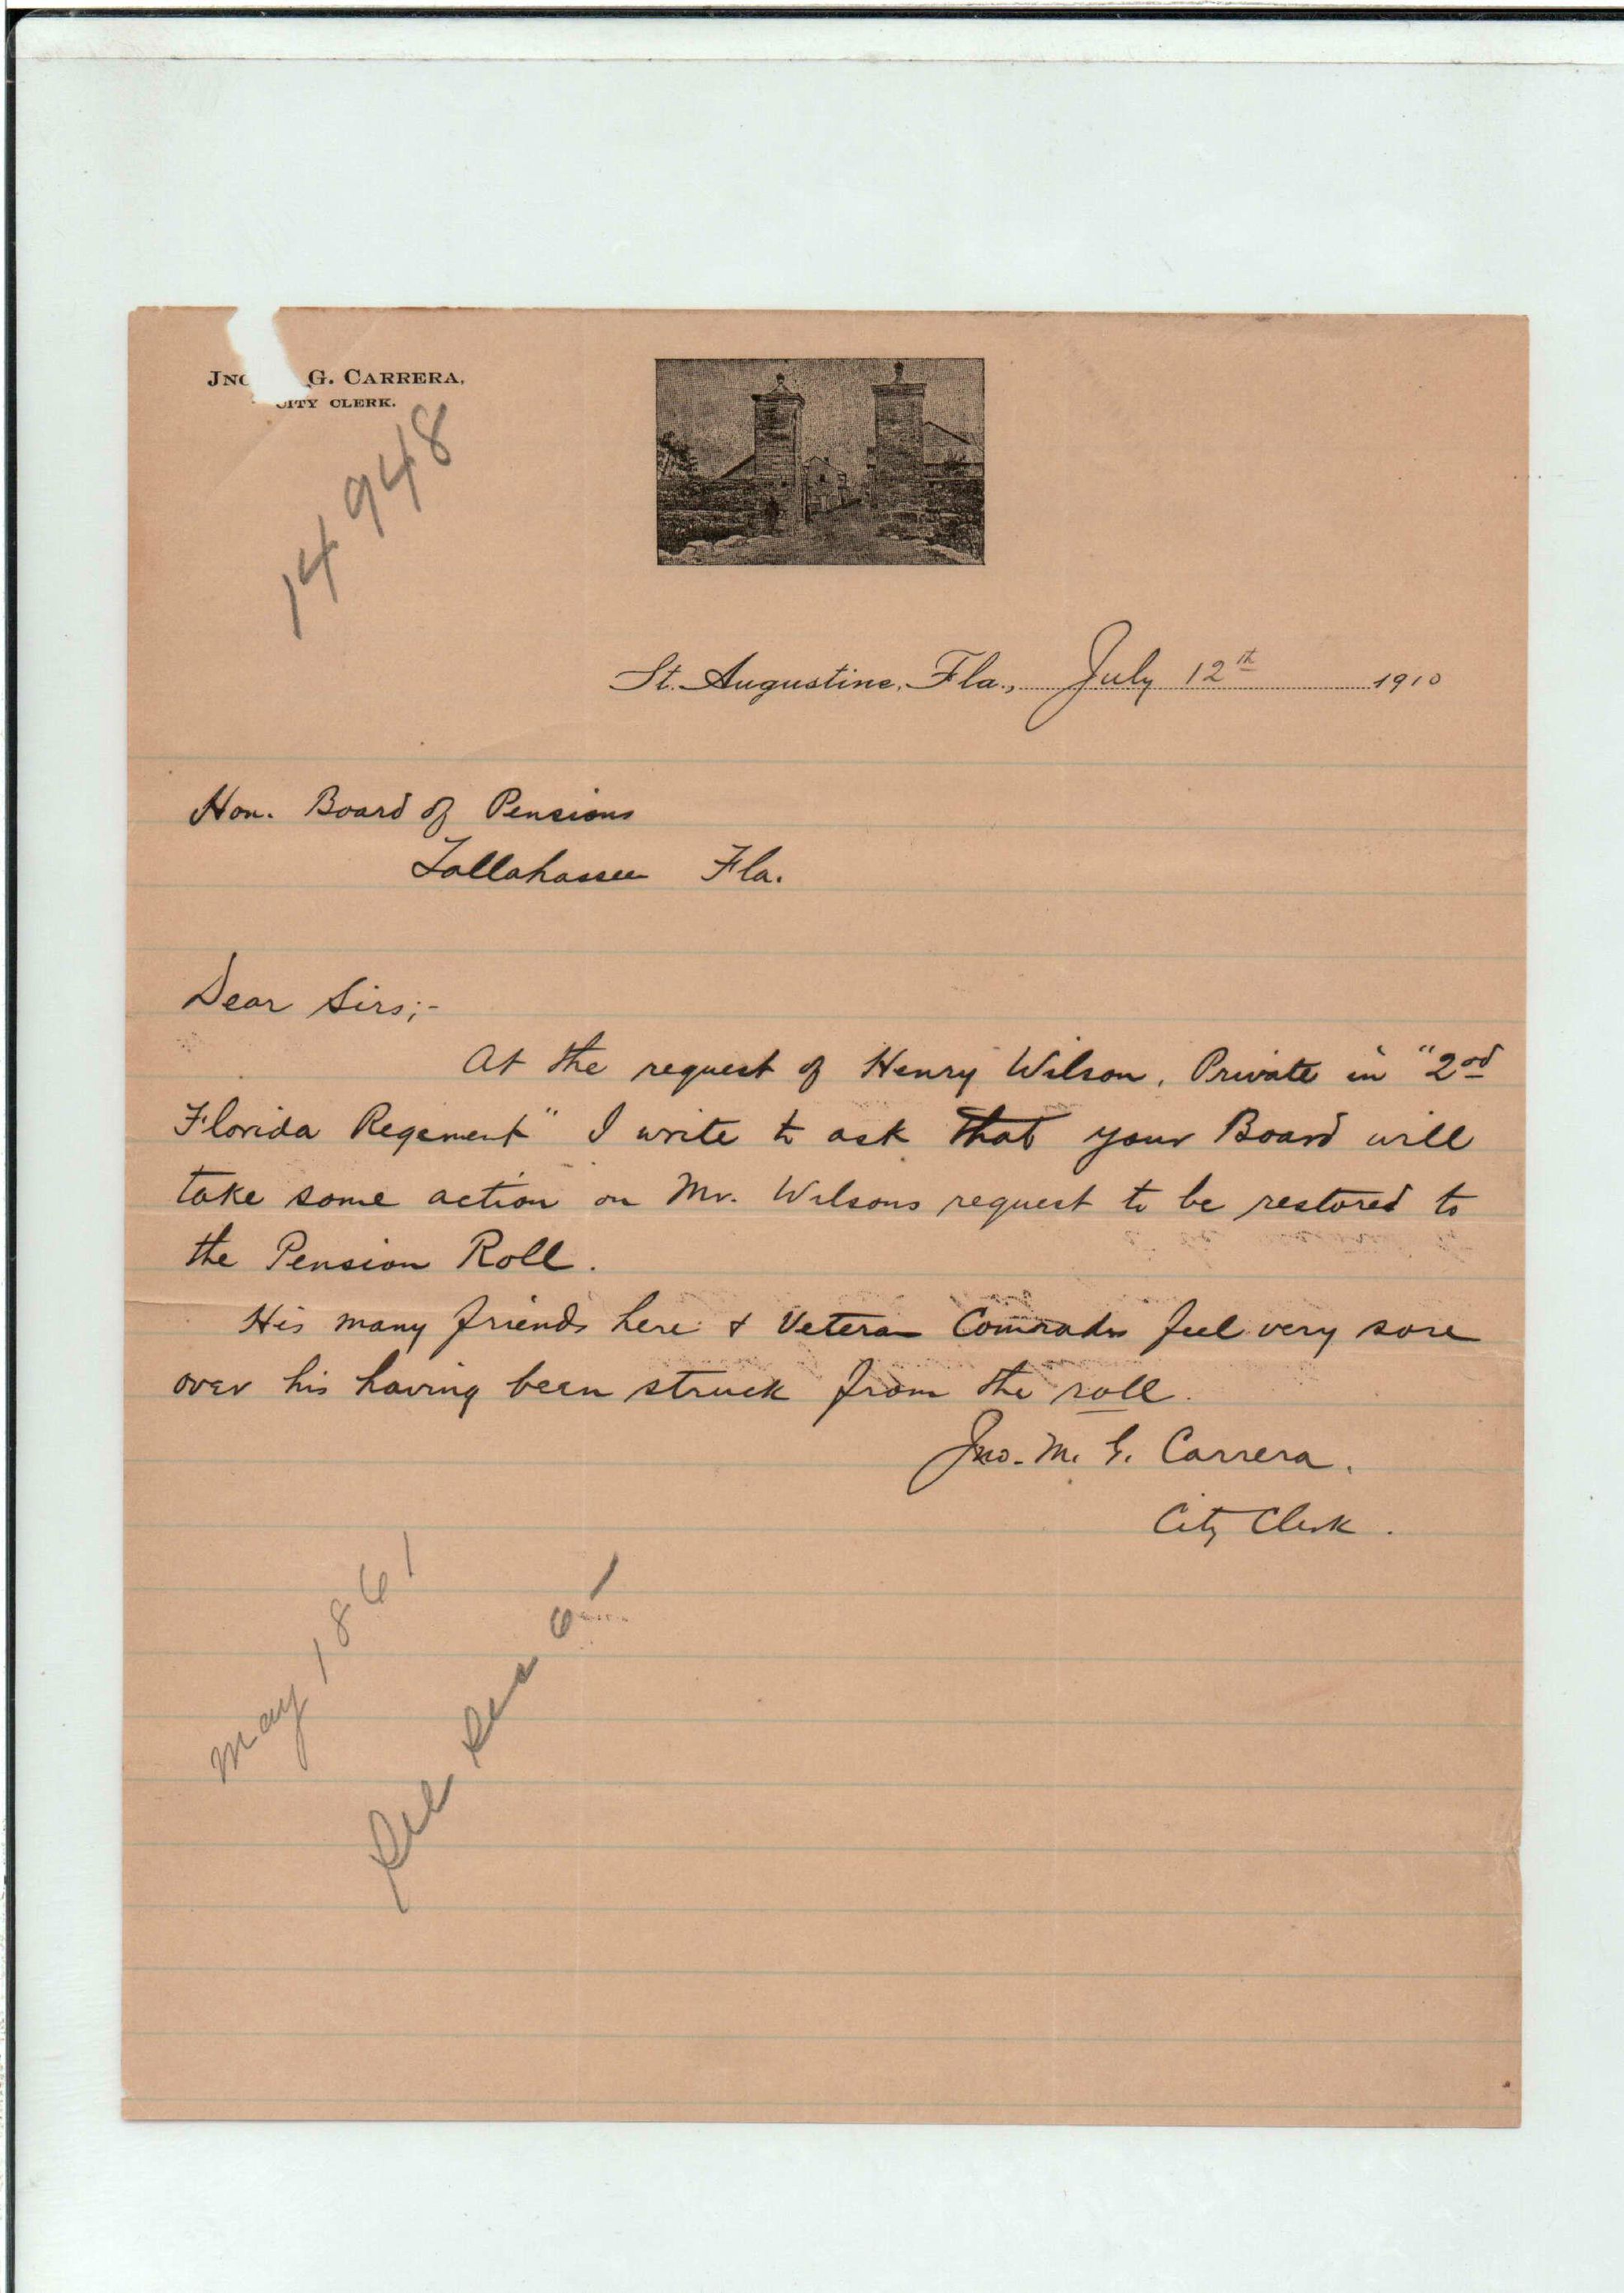 JNO G. CARRERA,
CITY CLERK.
14948
St. Augustine, Fla., July 12th 1910
Hon. Board of Pensions
Tallahassee Fla.
Dear Sirs;-
At the request of Henry Wilson, Private in "2nd
Florida Regement" I write to ask that your Board will
take some action on Mr. Wilsons request to be restored to
the Pension Roll.
His many friends here & Veteran Comrades feel very sore
over his having been struck from the roll.
Jno. M. G. Carrera.
City Clerk.
May 1861